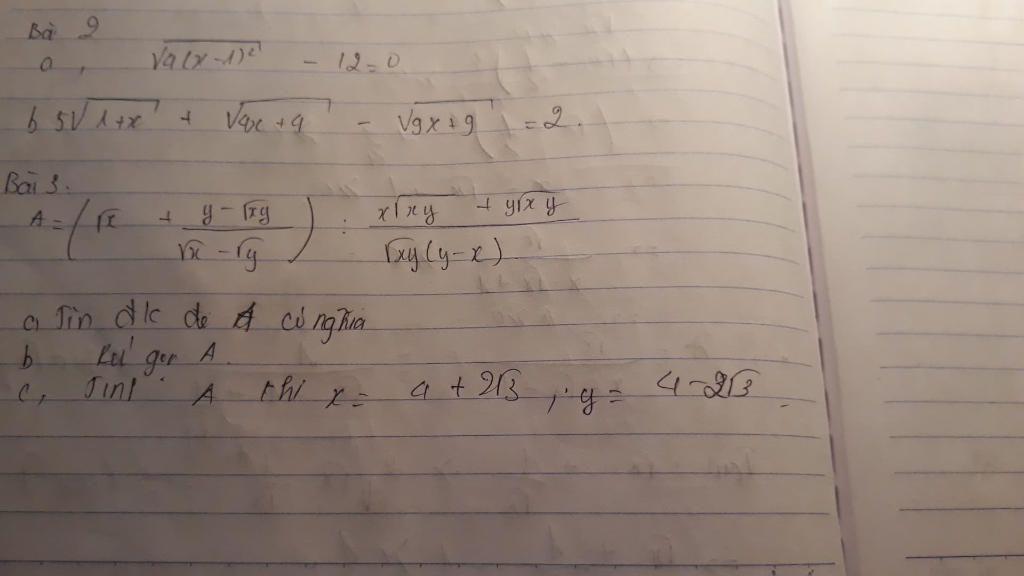 Bài 2
a, √4(x-1)² - 12=0
b 5√1+x + √4x+4 - √9x+9 =2.
Bài 3.
A = (√x + (y-√xy)/(√x-√y)) : (x√xy + y√xy)/(√xy(y-x))
a, Tìn đk de A có nghĩa
b Rú gọn A.
c, Tinh A khi x= 4+2√3, y= 4-2√3